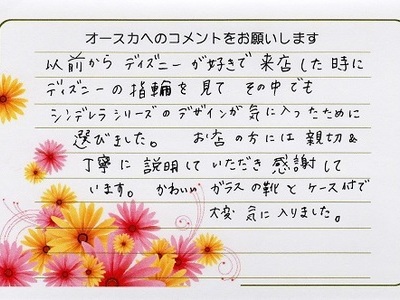 オースカへのコメントをお願いします
以前からディズニーが好きで来店した時に
ディズニーの指輪を見て その中でも
シンデレラシリーズのデザインが気に入ったために
選びました。 お店の方には親切&
丁寧に説明していただき感謝して
います。 かわいいガラスの靴とケース付で
大変気に入りました。